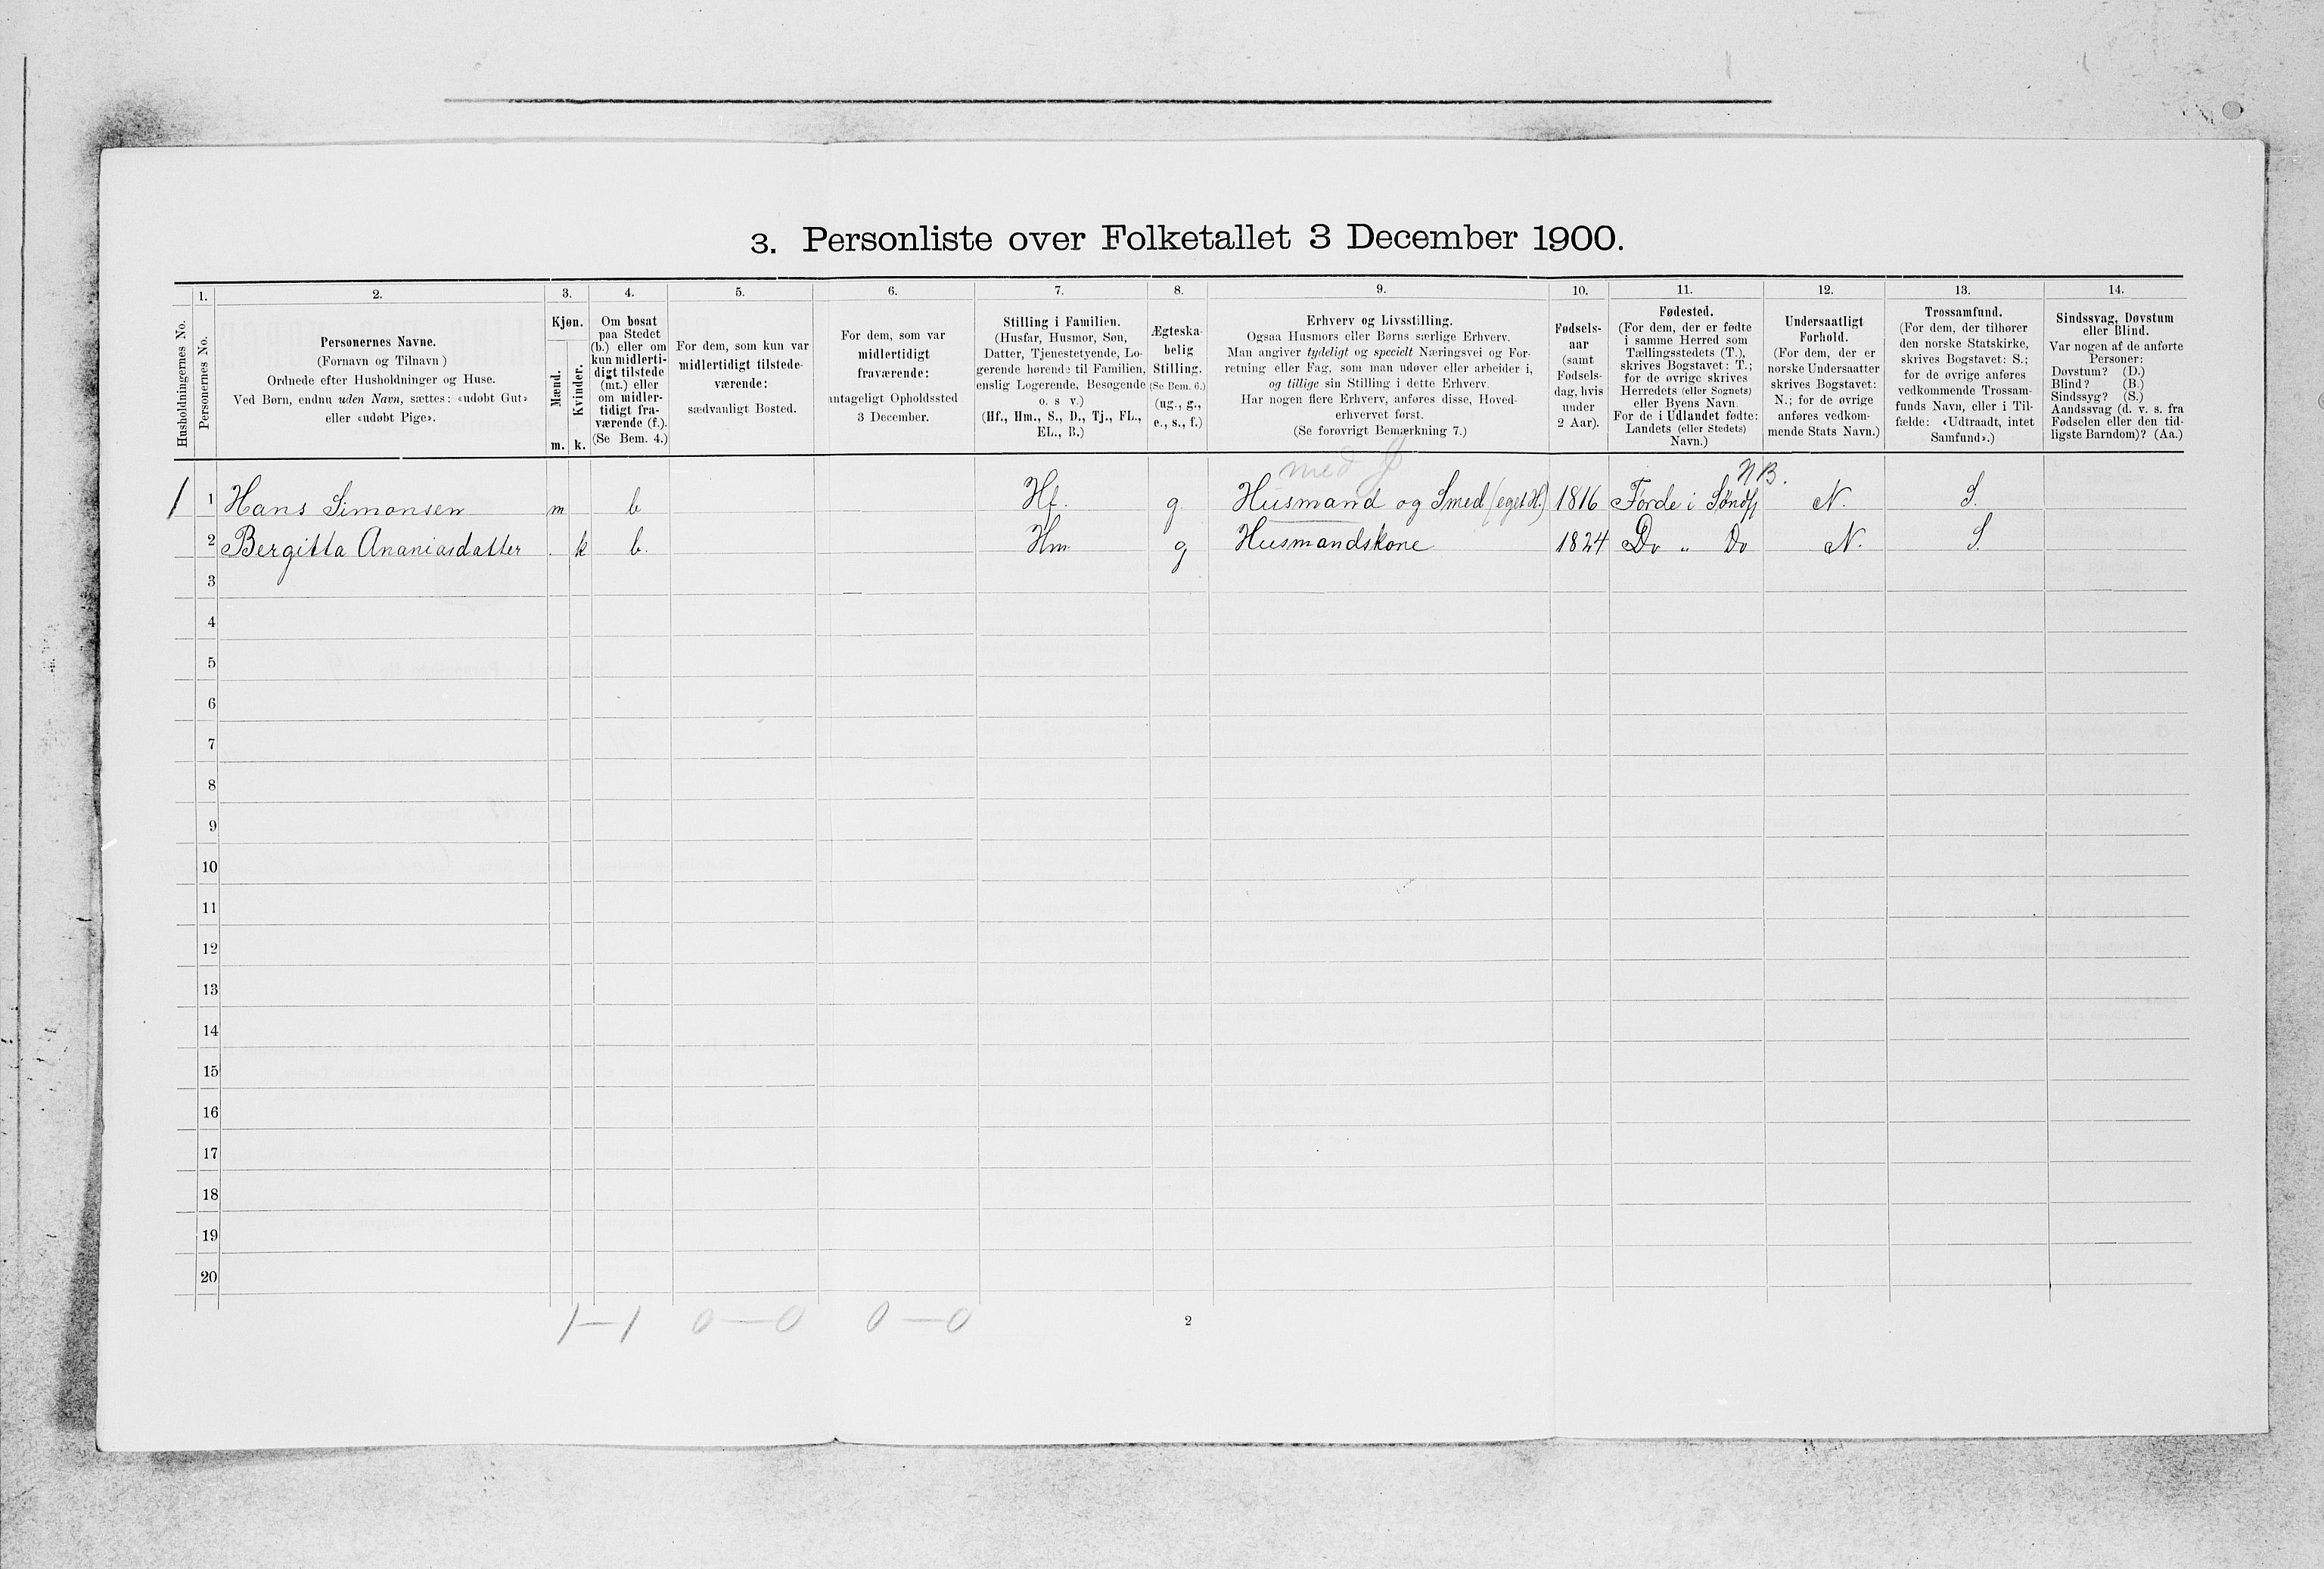 3. Personliste over Folketallet 3 December 1900.
Husholdningernes No.
1.
Personernes No.
2.
Personernes Navne.
(Fornavn og Tilnavn)
Ordnede efter Husholdninger og Huse.
Ved Børn, endnu uden Navn, sættes: «udøbt Gut»
eller «udøbt Pige».
3.
Kjøn.
Mænd.
m.
Kvinder.
k.
4.
Om bosat
paa Stedet
(b.) eller om
kun midlerti-
digt tilstede
(mt.) eller
om midler-
tidigt fra-
værende (f.).
(Se Bem. 4.)
5.
For dem, som kun var
midlertidigt tilstede-
værende:
sædvanligt Bosted.
6.
For dem, som var
midlertidigt
fraværende:
antageligt Opholdssted
3 December.
7.
Stilling i Familien.
(Husfar, Husmor, Søn,
Datter, Tjenestetyende, Lo-
gerende hørende til Familien,
enslig Logerende, Besøgende
o. s v.)
(Hf., Hm., S., D., Tj., FL.,
EL., B.)
8.
Ægteska-
belig
Stilling.
(Se Bem. 6.)
(ug., g.,
e., s., f.)
9.
Erhverv og Livsstilling.
Ogsaa Husmors eller Børns særlige Erhverv.
Man angiver tydeligt og specielt Næringsvei og For-
retning eller Fag, som man udøver eller arbeider i,
og tillige sin Stilling i dette Erhverv.
Har nogen flere Erhverv, anføres disse, Hoved-
erhvervet først.
(Se forøvrigt Bemærkning 7.)
10.
Fødsels-
aar
(samt
Fødsels-
dag, hvis
under
2 Aar).
11.
Fødested.
(For dem, der er fødte
i samme Herred som
Tællingsstedets (T.),
skrives Bogstavet: T.;
for de øvrige skrives
Herredets (eller Sognets)
eller Byens Navn.
For de i Udlandet fødte:
Landets (eller Stedets)
Navn.)
12.
Undersaatligt
Forhold.
(For dem, der er
norske Undersaatter
skrives Bogstavet:
N.; for de øvrige
anføres vedkom-
mende Stats Navn.)
13.
Trossamfund.
(For dem, der tilhører
den norske Statskirke,
skrives Bogstavet: S.;
for de øvrige anføres
vedkommende Trossam-
funds Navn, eller i Til-
fælde: «Udtraadt, intet
Samfund».)
14.
Sindssvag, Døvstum
eller Blind.
Var nogen af de anførte
Personer:
Døvstum? (D.)
Blind? (B.)
Sindssyg? (S.)
Aandssvag (d. v. s. fra
Fødselen eller den tid-
ligste Barndom)? (Aa.)
med J
NB.
1 1 Hans Simonsen m b Hf. g. Husmand og Smed (eget H.) 1816 Førde i Søndf N. S.
2 Bergitta Ananiasdatter . k b. Hm g Husmandskone 1824 Do " Do N. S.
3
4
5
6
7
8
9
10
11
12
13
14
15
16
17
18
19
20
1—1 0—0 0—0
2